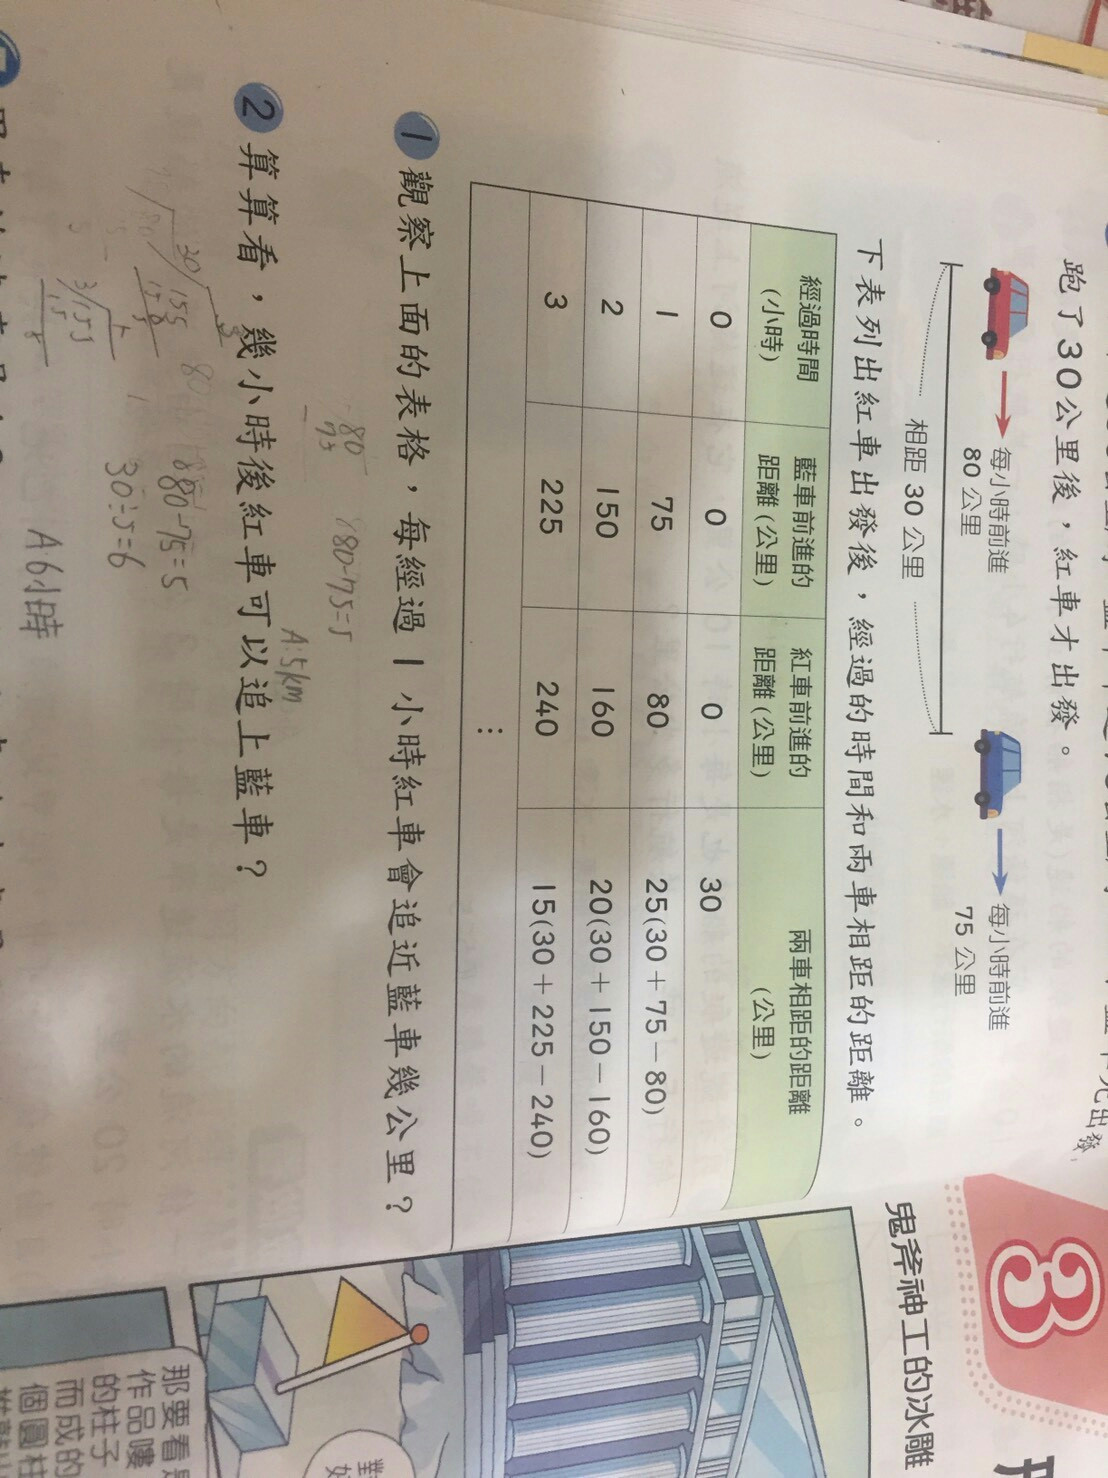 跑了30公里後，紅車才出發。
每小時前進
80 公里
每小時前進
75 公里
相距 30 公里
下表列出紅車出發後，經過的時間和兩車相距的距離。
經過時間（小時） 藍車前進的距離（公里） 紅車前進的距離（公里） 兩車相距的距離（公里）
0 0 0 30
1 75 80 25(30＋75－80)
2 150 160 20(30＋150－160)
3 225 240 15(30＋225－240)
⋮
1 觀察上面的表格，每經過 1 小時紅車會追近藍車幾公里？
80-75=5
A:5km
2 算算看，幾小時後紅車可以追上藍車？
80-75=5
30÷5=6
A:6小時
3
鬼斧神工的冰雕
那要看
作品嘍
的柱子
而成的
個圓柱